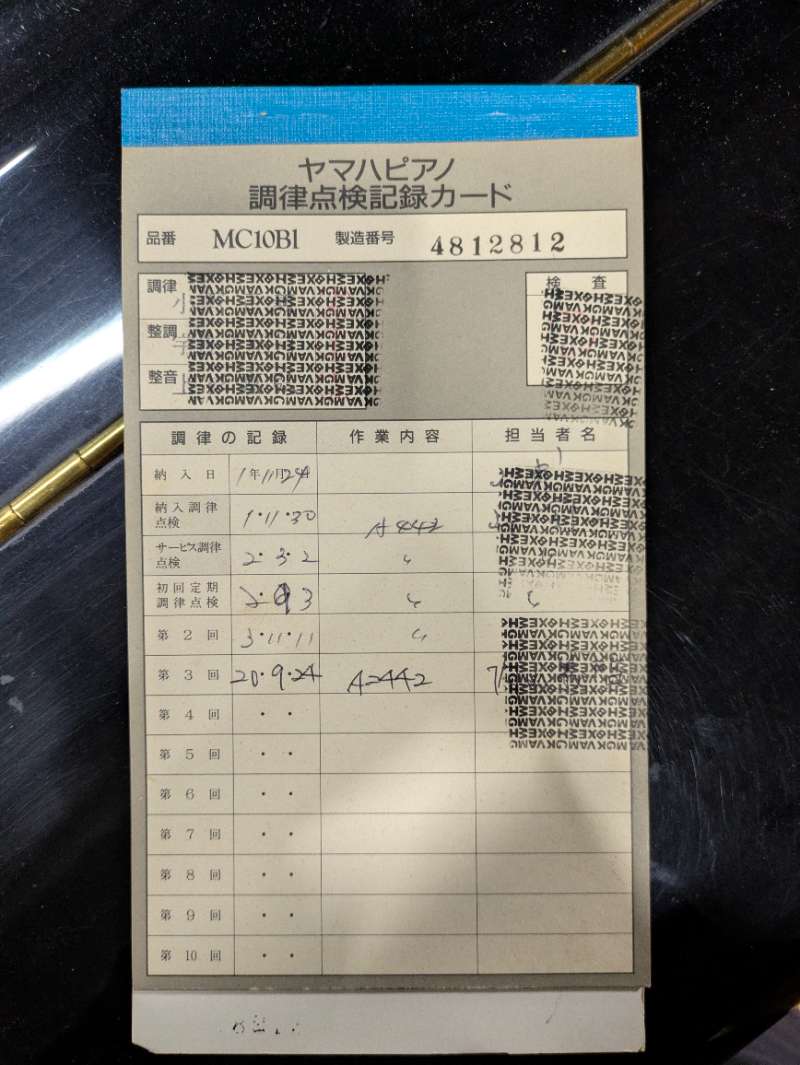 ヤマハピアノ
調律点検記録カード
品番 MC10Bl 製造番号 4812812
調律 小
整調
整音
検査
調律の記録 作業内容 担当者名
納入日 1年11月24
納入調律点検 1・11・30 A442
サービス調律点検 2・3・2 〃
初回定期調律点検 〃 〃
第2回 3・11・11 〃
第3回 20・9・24 A=442
第4回 ・ ・
第5回 ・ ・
第6回 ・ ・
第7回 ・ ・
第8回 ・ ・
第9回 ・ ・
第10回 ・ ・